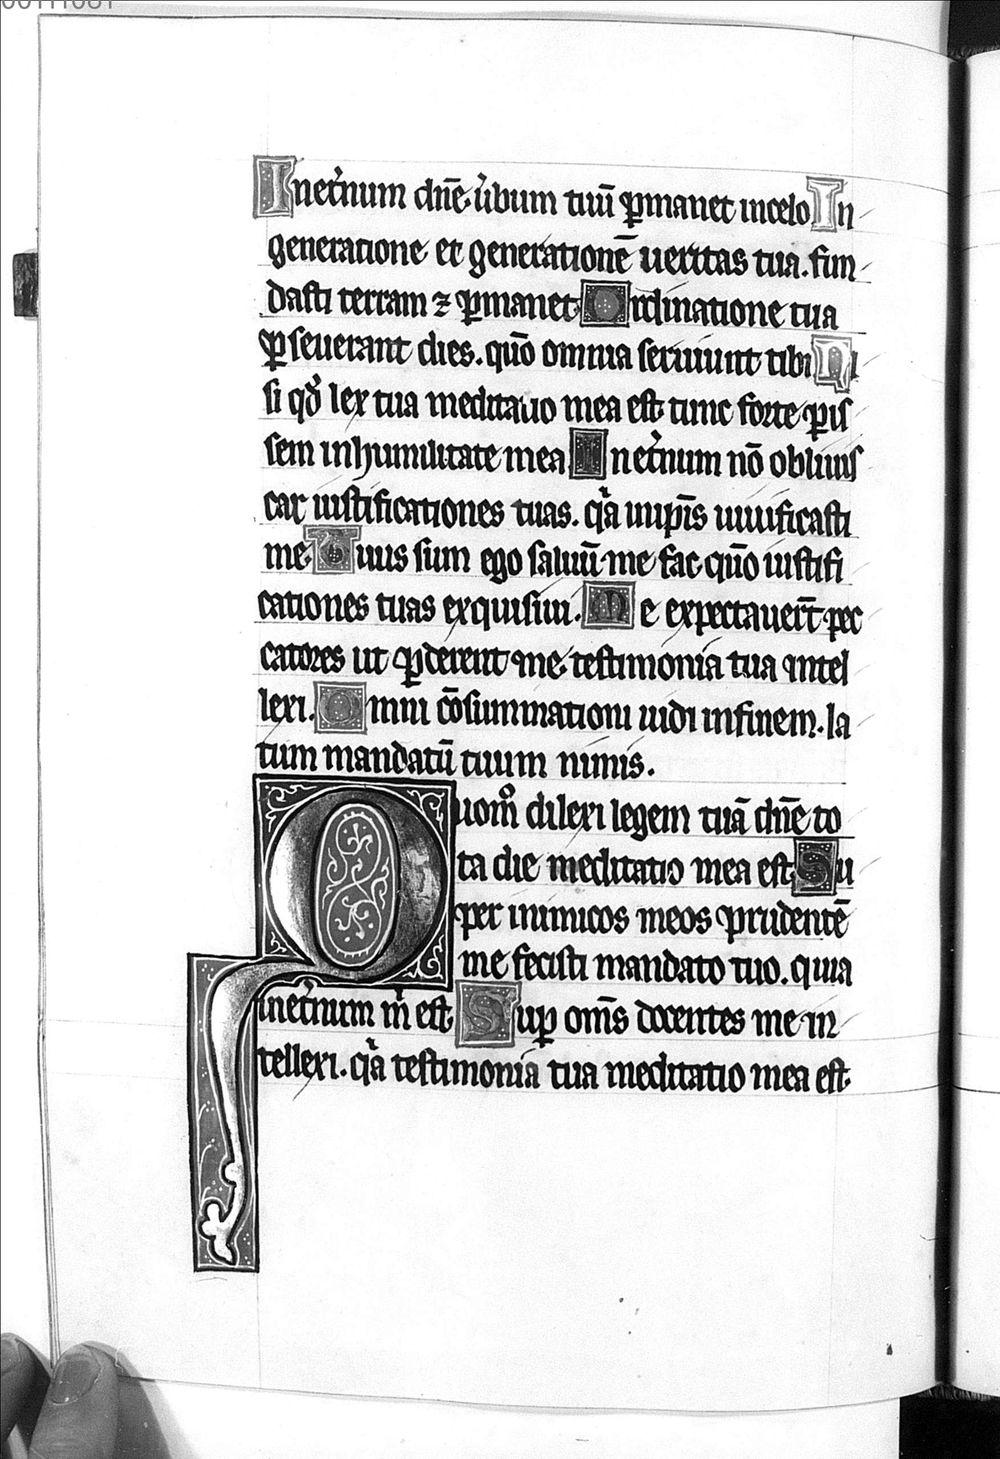 00111081
Inet̾num dn̄e u̾bum tuū ꝑmanet incelo In
generatione et generationē ueritas tua. fun
dasti terram ⁊ ꝑmanet Ordinatione tua
ꝑseuerant dies. quō omnia seruiunt tibi Ni
si qd̾ lex tua meditatio mea est tunc forte ꝑis
sem inhumilitate mea Inet̾num nō obliuis
car iustificationes tuas. qͣa inip̄is uiuificasti
me. Tuus sum ego saluū me fac quō iustifi
cationes tuas exquisiui. Me expectauer̄t pec
catores ut ꝑderent me testimonia tua intel
lexi. Omni cōsummationi uidi infinem. la
tum mandatū tuum nimis.
Quom̊ dilexi legem tuā dn̄e to
ta die meditatio mea est Su
per inimicos meos prudentē
me fecisti mandato tuo. quia
inet̾num m̄ est Suꝑ om̄s docentes me in
tellexi. qͣa testimonia tua meditatio mea est